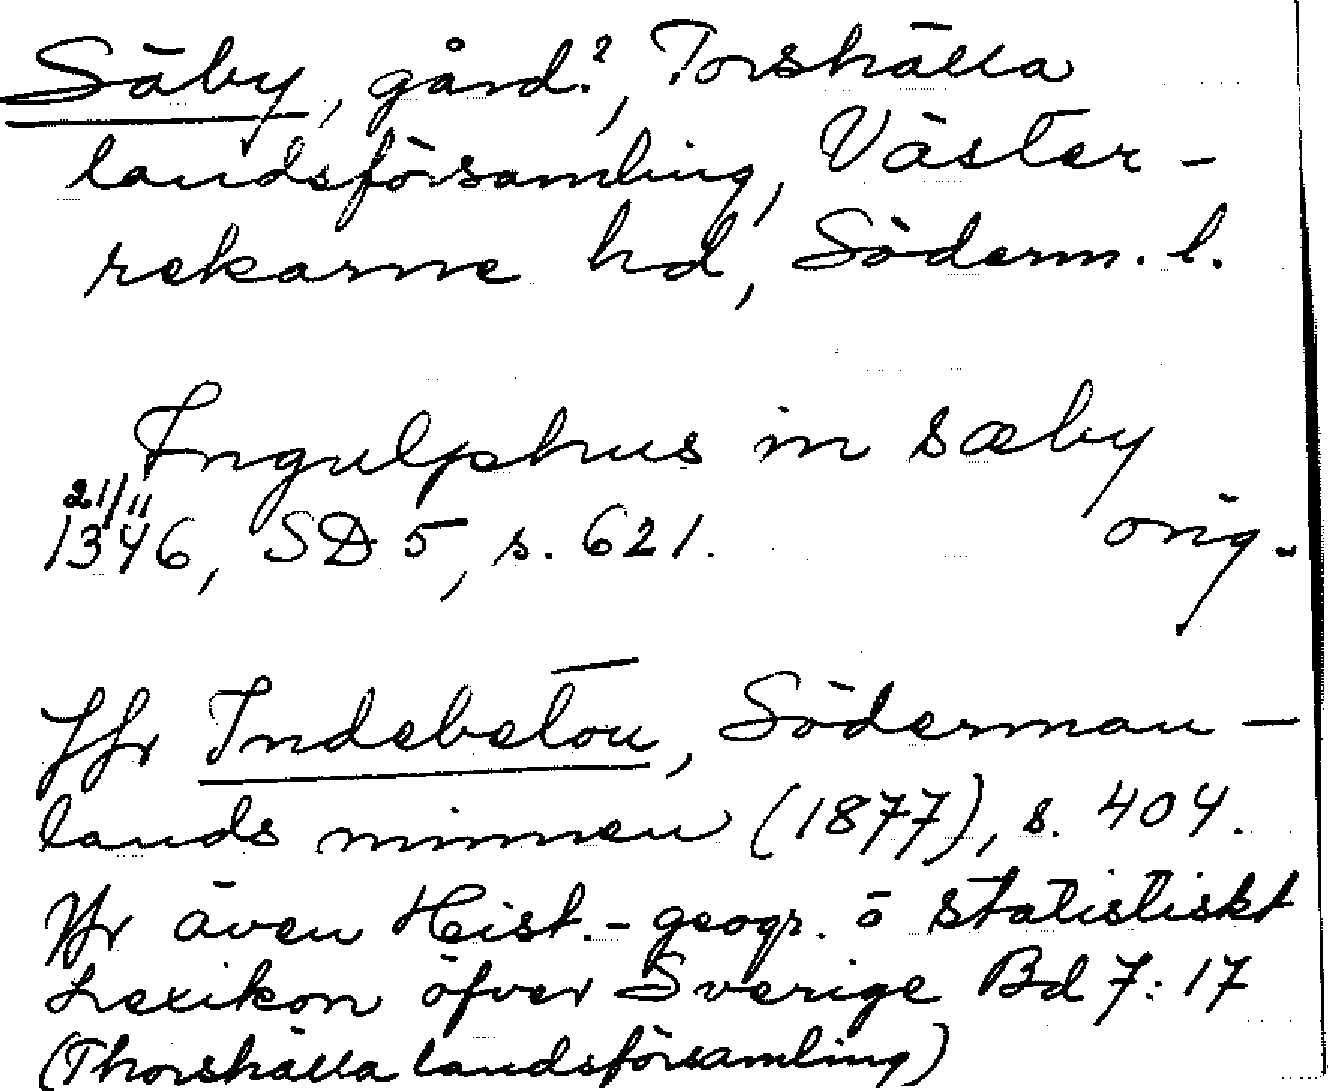 Säby, gård?, Torshälla
landsförsamling, Väster-
rekarne hd, Söderm. l.
Ingulphus in sæby
21/11
1346, SD 5, s. 621. orig.
Jfr Indebetou, Söderman-
lands minnen (1877), s. 404.
Jfr även Hist.-geogr. o statistiskt
Lexikon öfver Sverige Bd 7:17
(Thorshälla landsförsamling)